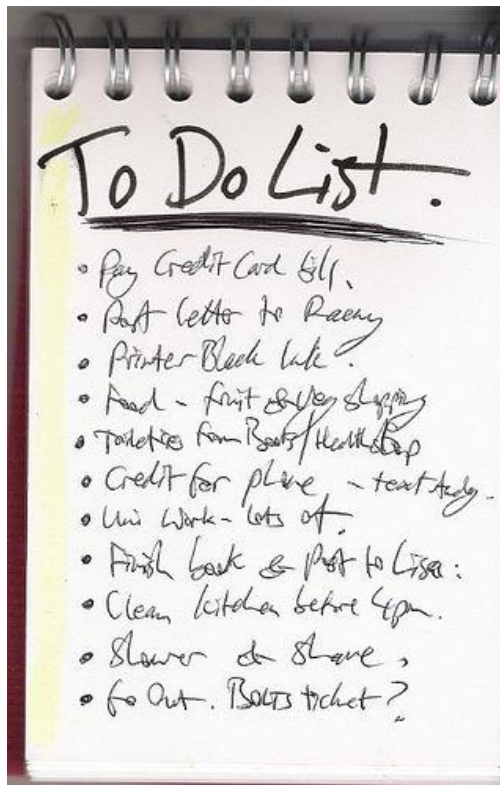 To Do List.
• Pay Credit Card bill.
• Post letter to
• Printer Black Ink.
• Food - fruit & Veg shopping
• Toiletries from Boots/Health Shop
• Credit for phone - text Andy.
• Uni Work - lots of.
• Finish book & Post to Lisa.
• Clean kitchen before 4pm.
• Shower & Shave,
• Go Out. ticket?